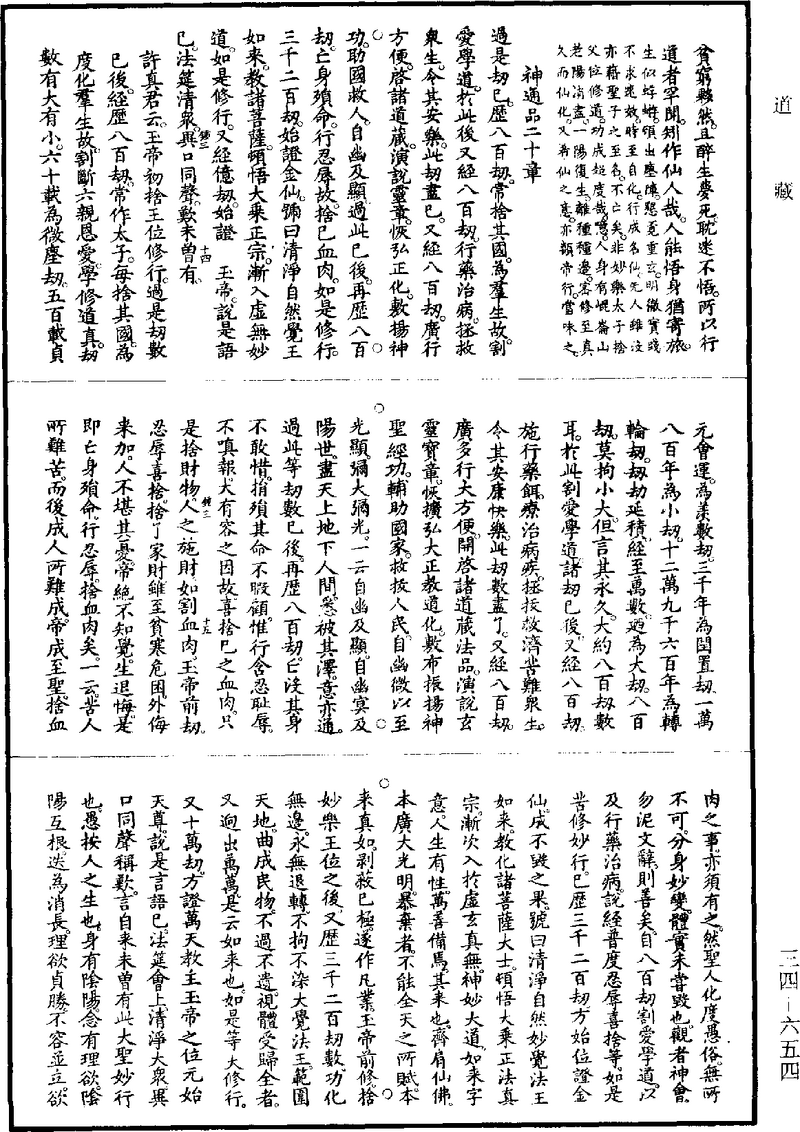 道藏
貧窮夥然且醉生夢死耽迷不悟所以行
道者罕聞矧作仙人哉人能悟身猶寄旅
老陽消盡一陽復生離種種邊客修至真
久而仙化又希仙之意亦類帝行嘗味之
神通品二十章
過是劫已歷八百劫常捨其國為羣生故割
愛學道於此後又經八百劫行藥治病拯救
衆生令其安樂此劫盡已又經八百劫廣行
方便啓諸道藏演說靈章恢弘正化敷揚神
功助國救人自幽及顯過此已後再歷八百
劫亡身殞命行忍辱故捨已血肉如是修行
三千二百劫始證金仙號曰清淨自然覺王
如來教諸菩薩頓悟大乘正宗漸入虛無妙
道如是修行又經億劫始證 玉帝說是語
已法筵清衆異口同聲歎未曾有
許真君云玉帝初捨王位修行過是劫數
已後經歷八百劫常作太子每捨其國為
度化羣生故割斷六親恩愛學修道真劫
數有大有小六十載為微塵劫五百載貞
元會運為差數劫三千年為閏置劫一萬
八百年為小劫十二萬九千六百年為轉
輪劫劫劫延積經至萬數迺為大劫八百
劫莫拘小大但言其永久大約八百劫數
耳於此割愛學道諸劫已後又經八百劫
施行藥餌療治病疾拯拔救濟苦難衆生
令其安康快樂此劫數盡了又經八百劫
廣多行大方便開啓諸道藏法品演說玄
靈寶章恢擴弘大正教道化敷布振揚神
聖經功輔助國家救拔人民自幽微以至
光顯彌大彌光一云自幽及顯自幽冥及
陽世盡天上地下人間悉被其澤意亦通
過此等劫數已後再歷八百劫亡沒其身
不敢惜捐殞其命不暇顧惟行含忍恥辱
不嗔報大有容之因故喜捨已之血肉只
是捨財物人之施財如割血肉玉帝前劫
忍辱喜捨捨了家財雖至貧寒危困外侮
來加人不堪其憂帝絶不知覺生退悔是
即亡身殞命行忍辱捨血肉矣一云苦人
所難苦而後成人所難成帝成至聖捨血
肉之事亦須有之然聖人化度愚俗無所
不可分身妙變體實未嘗毀也觀者神會
勿泥文辭則善矣自八百劫割愛學道以
及行藥治病說經普度忍辱喜捨等如是
苦修妙行已歷三千二百劫方始位證金
仙成不毀之果號曰清淨自然妙覺法王
如來教化諸菩薩大士頓悟大乘正法真
宗漸次入於虛玄真無神妙大道如來字
意人生有性萬善備焉其來也齊肩仙佛
本廣大光明暴棄者不能全天之所賦本
來真如剥蔽已極遂作凡業玉帝前修捨
妙樂王位之後又歷三千二百劫數功化
無邊永無退轉不拘不染大覺法王範圍
天地曲成民物不過不遺視體受歸全者
又逈出萬萬是云如來也如是等大修行
又十萬劫方證萬天教主玉帝之位元始
天尊說是言語已法筵會上清淨大衆異
口同聲稱歎言自來未曾有此大聖妙行
也愚按人之生也身有陰陽念有理欲陰
陽互根迭為消長理欲貞勝不容並立欲
三四—六五四